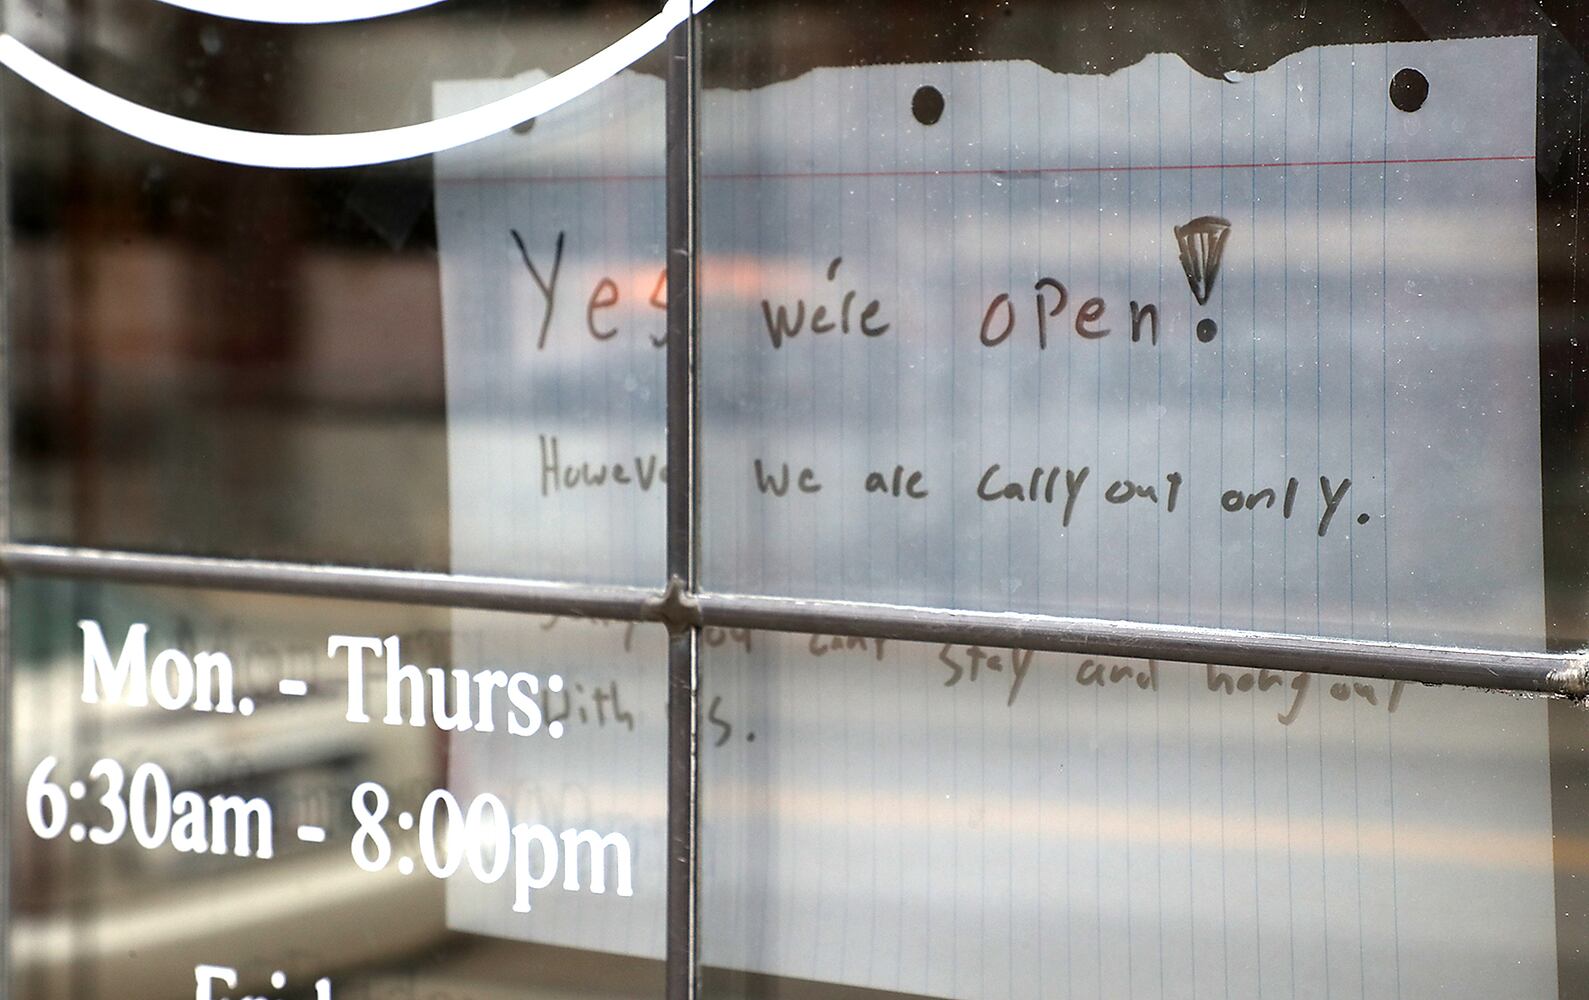 Yes we're open!
However we are carry out only.
Sorry you can't stay and hang out
with us.
Mon. - Thurs:
6:30am - 8:00pm